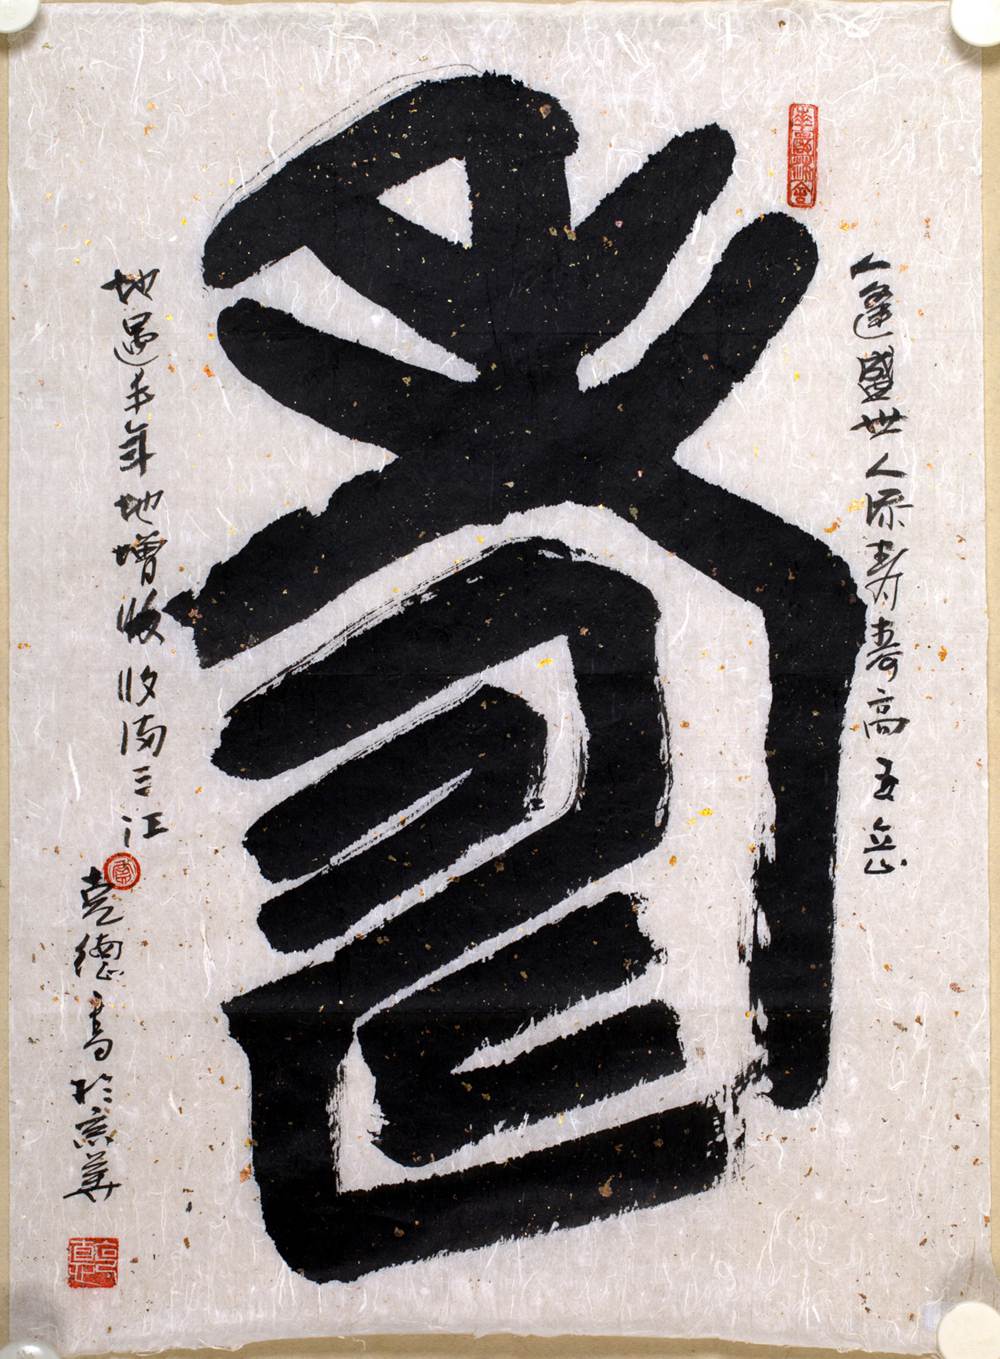 人逢盛世人添寿寿高五岳
壽
地遇丰年地增收收满三江
克德書於京華